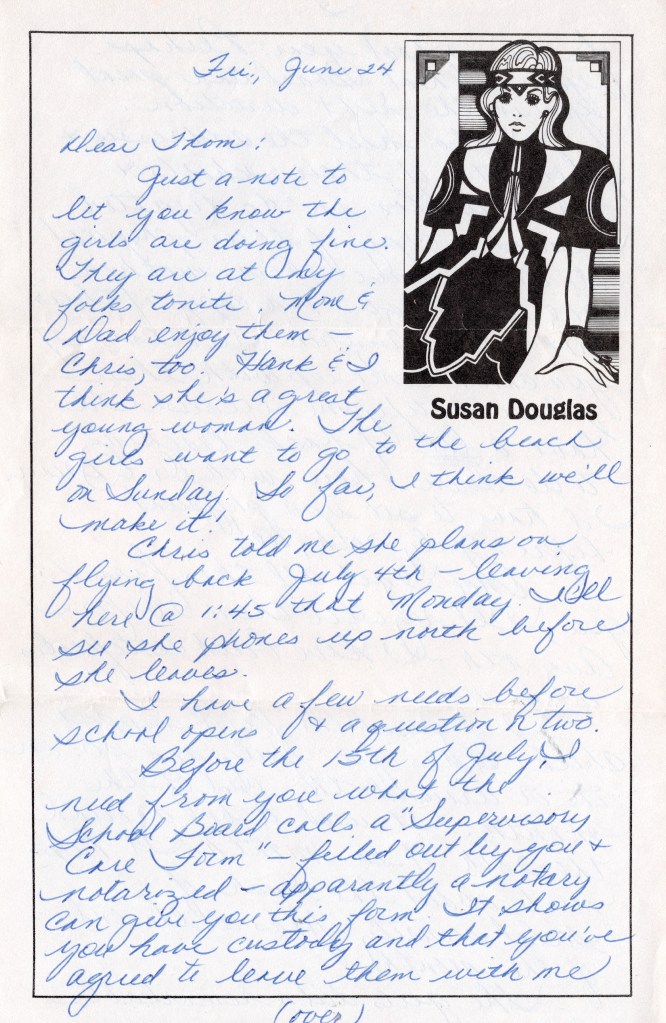 Fri., June 24
Dear Thom:
Just a note to
let you know the
girls are doing fine.
They are at my
folks tonite. Mom &
Dad enjoy them –
Chris, too. Hank & I
think she's a great
young woman. The
girls want to go to the beach
on Sunday. So far, I think we'll
make it!
Susan Douglas
Chris told me she plans on
flying back July 4th – leaving
here @ 1:45 that Monday. I'll
see she phones up north before
she leaves.
I have a few needs before
school opens & a question or two.
Before the 15th of July, I
need from you what the
School Board calls a "Supervisory
Care Form" – filled out by you &
notarized – apparantly a notary
can give you this form. It shows
you have custody and that you've
agreed to leave them with me
(over)